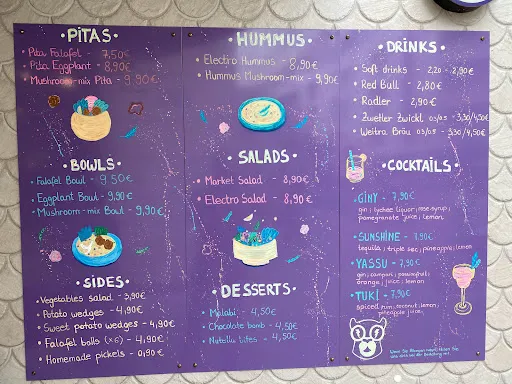 • PiTAS •
• Pita Falafel - 7,50€
• Pita Eggplant - 8,90€
• Mushroom-mix Pita - 9,90€
• BOWLS •
• Falafel Bowl - 9,50€
• Eggplant Bowl - 9,90€
• Mushroom-mix Bowl - 9,90€
• SiDES •
• Vegetables salad - 3,90€
• Potato wedges - 4,90€
• Sweet potato wedges - 4,90€
• Falafel balls (x6) - 4,90€
• Homemade pickels - 0,90€
• HUMMUS •
• Electro Hummus - 8,90€
• Hummus Mushroom-mix - 9,90€
• SALADS •
• Market Salad - 8,90€
• Electro Salad - 8,90€
• DESSERTS •
• Malabi - 4,50€
• Chocolate bomb - 4,50€
• Nutella bites - 4,50€
• DRiNKS •
• Soft drinks - 2,20 - 2,90€
• Red Bull - 2,80€
• Radler - 2,90€
• Zwettler Zwickl 0,3/0,5 - 3,30/4,50€
• Weitra Bräu 0,3/0,5 - 3,30/4,50€
• COCKTAiLS •
• GiNY - 7,90€
gin; lychee liquor; rose syrup;
pomegranate juice; lemon
• SUNSHiNE - 7,90€
tequilla; triple sec; pineapple; lemon
• YASSU - 7,90€
gin; campari; passionfruit;
orange juice; lemon
• TUKi - 7,90€
spiced rum; coconut; lemon;
pineapple juice